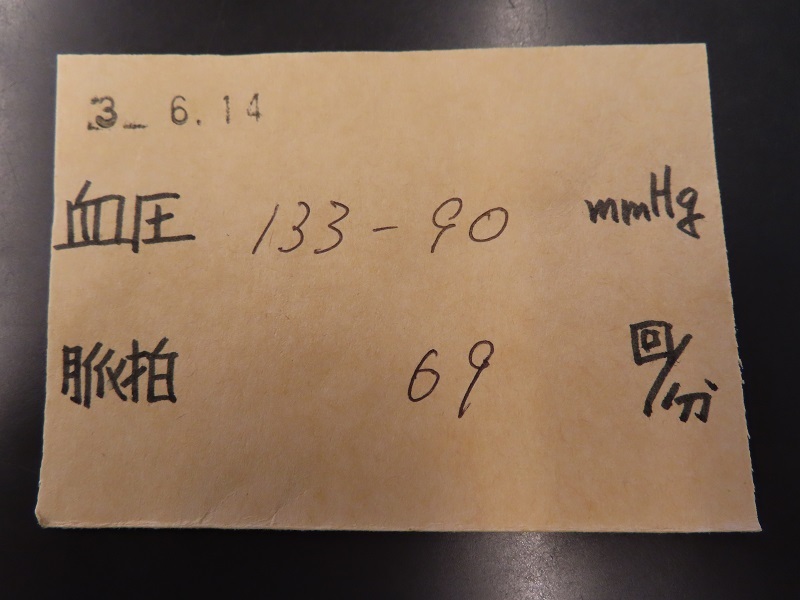 3. 6.14
血圧 133-90 mmHg
脈拍 69 回/分